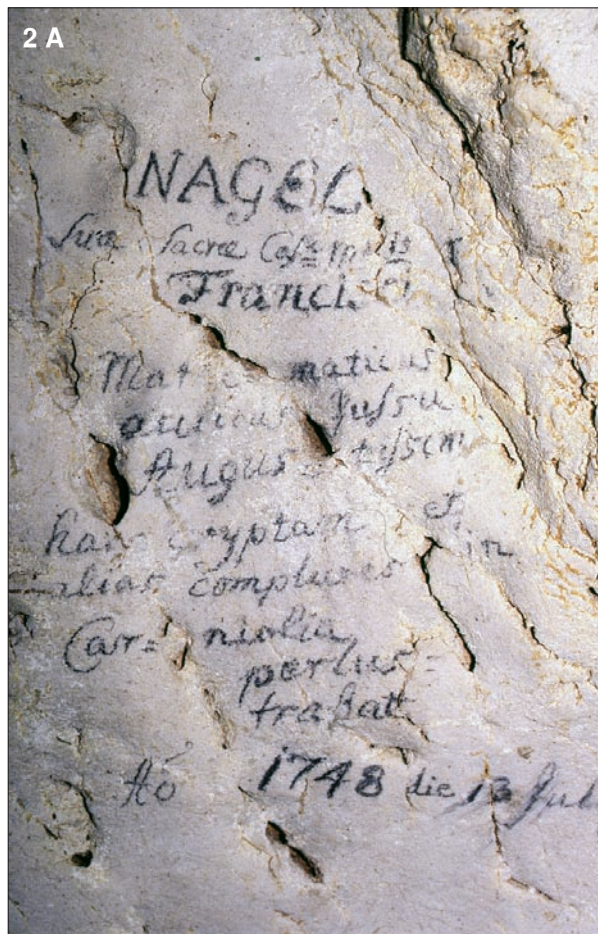 2 A
NAGEL
Suæ Sacræ
Francis
Mat maticus
aulicus Jussu
Augus tissim
hanc cryptam et in
alias complures
Car= niolia
perlus=
trabat
Aō 1748 die 13 Jul